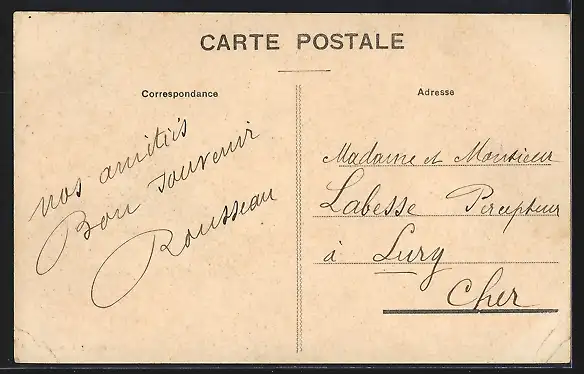 CARTE POSTALE
Correspondance
nos amitiés
Bon souvenir
Rousseau
Adresse
Madame et Monsieur
Labesse Percepteur
à Lury
Cher